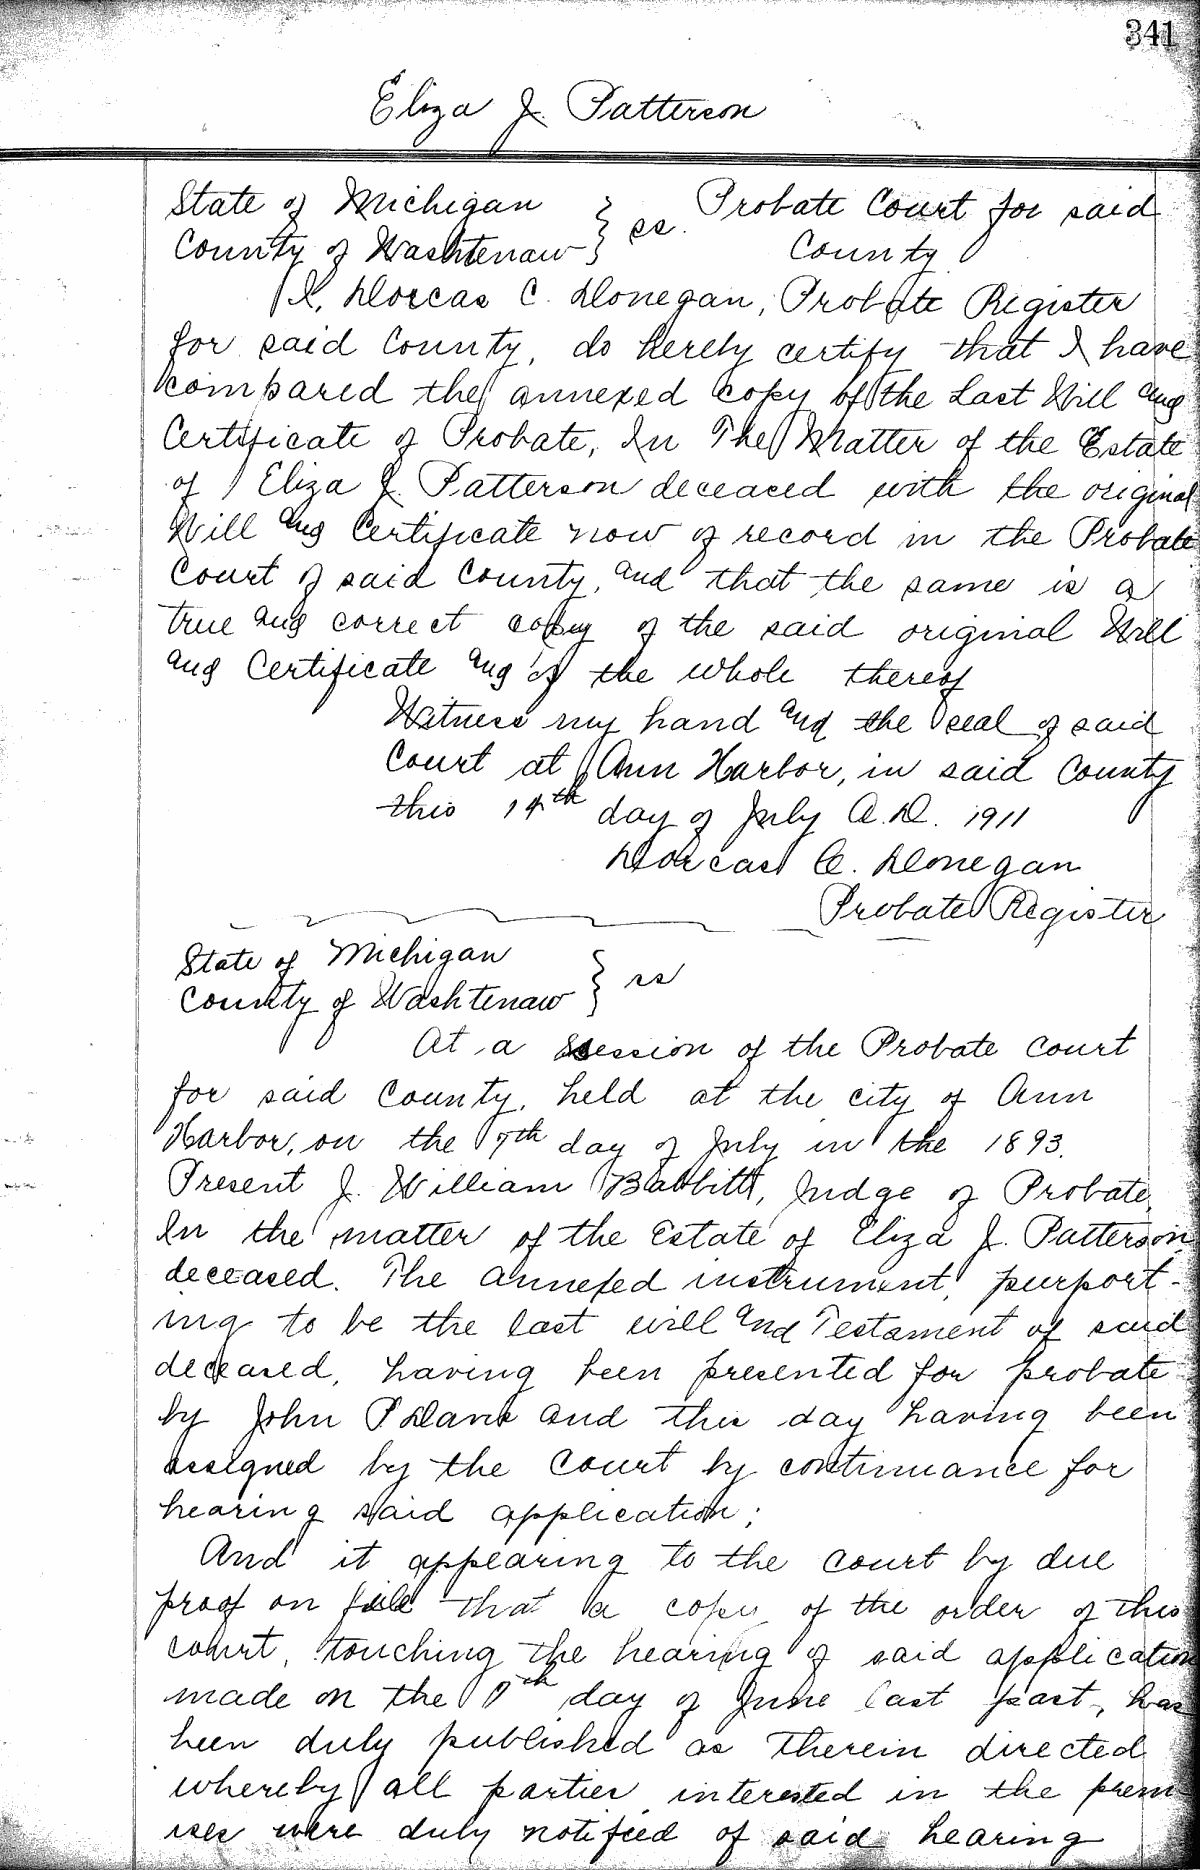 341
Eliza J. Patterson
State of Michigan } ss. Probate Court for said
County of Washtenaw } County
I, Dorcas C. Donegan, Probate Register
for said County, do hereby certify that I have
compared the annexed copy of the Last Will and
Certificate of Probate, In The Matter of the Estate
of Eliza J. Patterson deceased with the original
Will and Certificate now of record in the Probate
Court of said County, and that the same is a
true and correct copy of the said original Will
and Certificate and of the whole thereof
Witness my hand and the seal of said
Court at Ann Harbor, in said County
this 14th day of July A.D. 1911
Dorcas C. Donegan
Probate Register
State of Michigan } ss
County of Washtenaw }
At a session of the Probate court
for said County, held at the city of Ann
Harbor, on the 7th day of July in the 1893.
Present J. William Babbitt, Judge of Probate.
In the matter of the Estate of Eliza J. Patterson
deceased. The annexed instrument, purport-
ing to be the last will and Testament of said
deceased, having been presented for probate
by John P Davis and this day having been
assigned by the Court by continuance for
hearing said application;
And it appearing to the court by due
proof on file that a copy of the order of this
court, touching the hearing of said application
made on the day of June last past, has
been duly published as therein directed
whereby all parties interested in the prem
ises were duly notified of said hearing